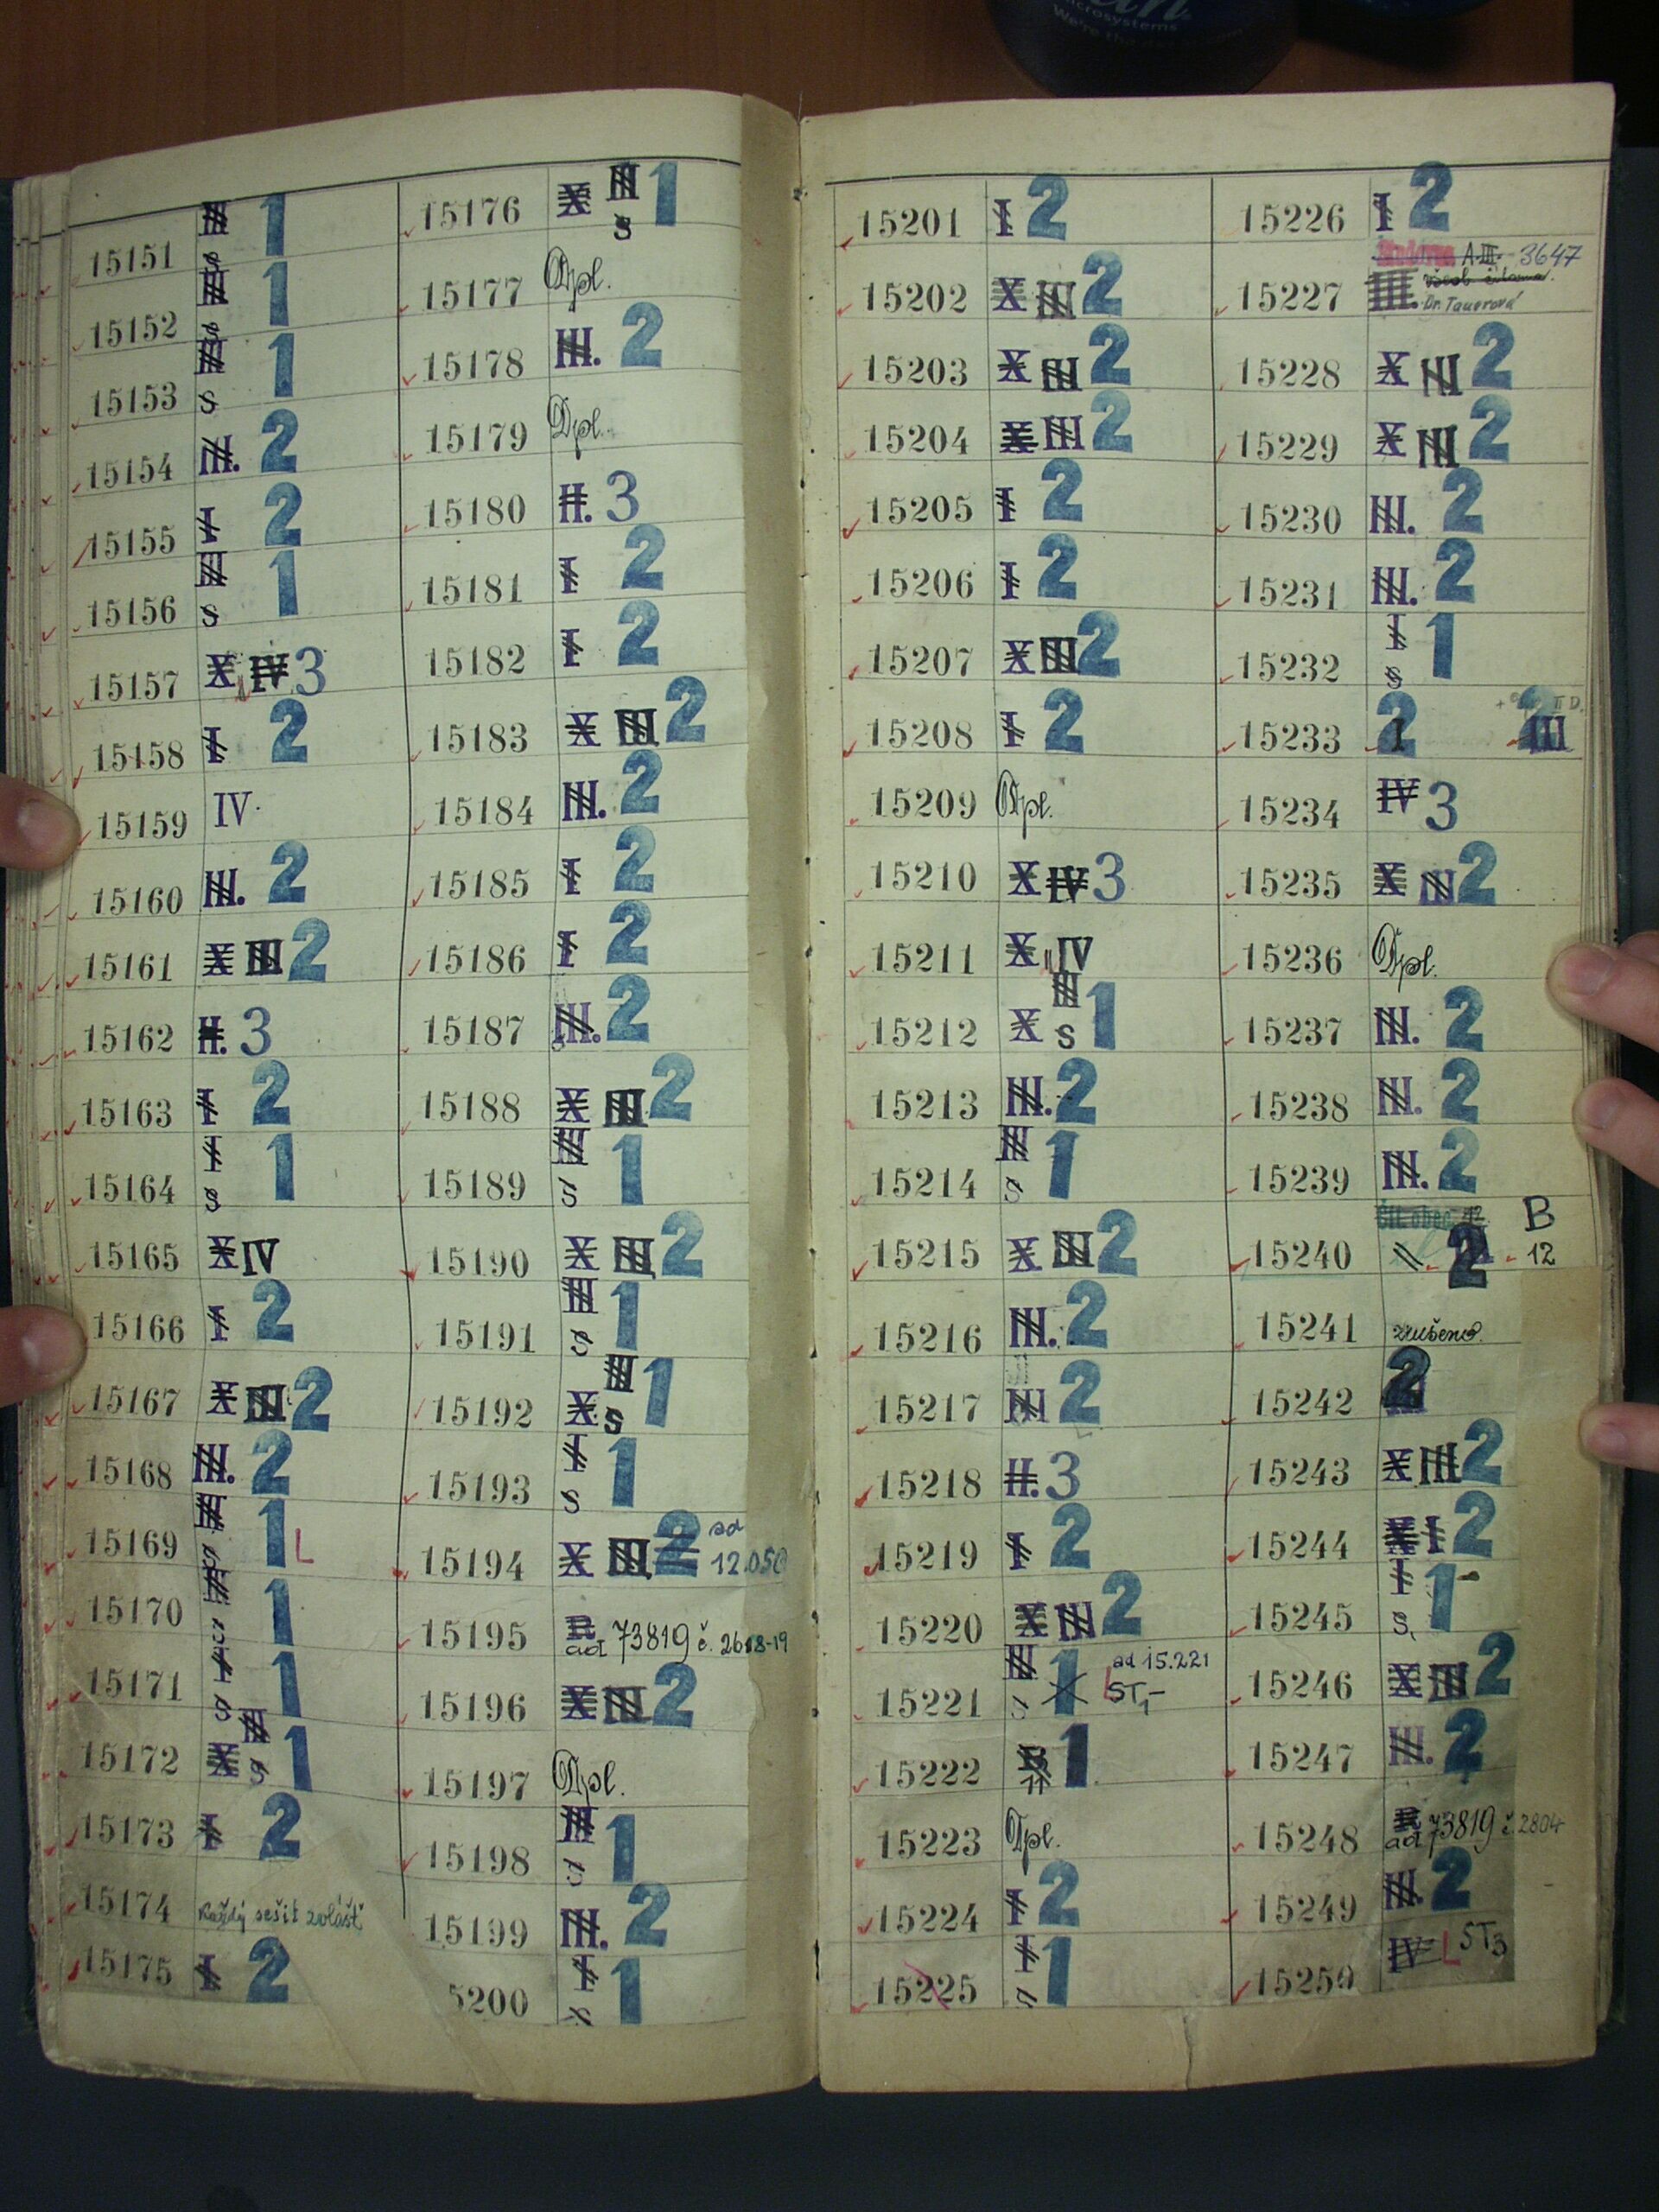 Microsystems
We're the dot in .com
15151 III s 1
15152 III s 1
15153 III s 1
15154 III. 2
15155 I 2
15156 III s 1
15157 X IV 3
15158 I 2
15159 IV.
15160 III. 2
15161 X III 2
15162 II. 3
15163 I 2
15164 I s 1
15165 X IV
15166 I 2
15167 X III 2
15168 III. 2
15169 III s 1 L
15170 s 1
15171 I s 1
15172 X III s 1
15173 I 2
15174 Každý sešit zvlášť
15175 I 2
15176 X III s 1
15177 Dpl.
15178 III. 2
15179 Dpl.
15180 II. 3
15181 I 2
15182 I 2
15183 X III 2
15184 III. 2
15185 I 2
15186 I 2
15187 III. 2
15188 X III 2
15189 III s 1
15190 X III 2
15191 III s 1
15192 X III s 1
15193 I s 1
15194 X III 2 ad 12.050
15195 R ad 73819 č. 2618-19
15196 X III 2
15197 Dpl.
15198 III s 1
15199 III. 2
5200 I s 1
15201 I 2
15202 X III 2
15203 X III 2
15204 X III 2
15205 I 2
15206 I 2
15207 X III 2
15208 I 2
15209 Dpl.
15210 X IV 3
15211 X IV
15212 X III s 1
15213 III. 2
15214 III s 1
15215 X III 2
15216 III. 2
15217 III 2
15218 II. 3
15219 I 2
15220 X III 2
15221 III s 1 L ad 15.221 ST,-
15222 1
15223 Dpl.
15224 I 2
15225 I s 1
15226 I 2
15227 III. A.III. 3647 Dr. Tauerová
15228 X III 2
15229 X III 2
15230 III. 2
15231 III. 2
15232 I s 1
15233 2 I III
15234 IV 3
15235 X III 2
15236 Dpl.
15237 III. 2
15238 III. 2
15239 III. 2
15240 2 B - 12
15241 zrušeno.
15242 2
15243 X III 2
15244 X I 2
15245 I s, 1
15246 X III 2
15247 III. 2
15248 R ad 73819 č 2804
15249 III. 2
15250 IV L ST3